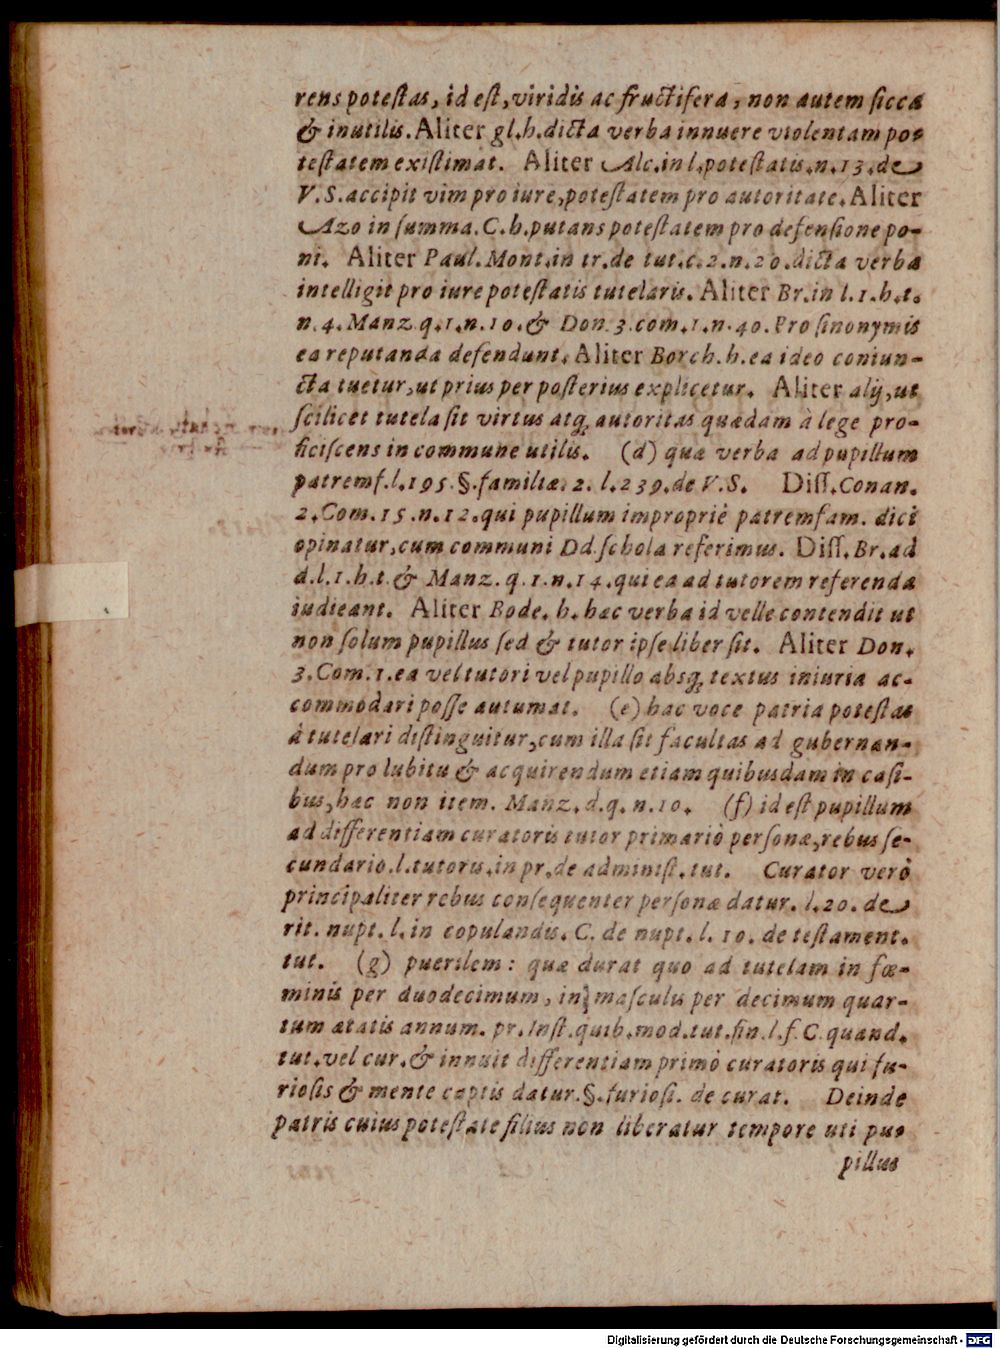 rens potestas, id est, viridis ac fructifera, non autem sicca
& inutilis. Aliter gl. h. dicta verba innuere violentam po-
testatem existimat. Aliter Alc. in l. potestatis. n. 13. de
V. S. accipit vim pro iure, potestatem pro autoritate. Aliter
Azo in summa. C. h. putans potestatem pro defensione po-
ni. Aliter Paul. Mont. in tr. de tut. c. 2. n. 20. dicta verba
intelligit pro iure potestatis tutelaris. Aliter Br. in l. 1. h. t.
n. 4. Manz. q. 1. n. 10. & Don. 3. com. 1. n. 40. Pro sinonymis
ea reputanda defendunt. Aliter Borch. h. ea ideo coniun-
cta tuetur, ut prius per posterius explicetur. Aliter alij, ut
scilicet tutela sit virtus atq; autoritas quædam à lege pro-
ficiscens in commune utilis. (d) quæ verba ad pupillum
patremf. l. 195. §. familiæ. 2. l. 239. de V. S. Diss. Conan.
2. Com. 15. n. 12. qui pupillum impropriè patremfam. dici
opinatur, cum communi Dd. schola referimus. Diss. Br. ad
d. l. 1. h. t. & Manz. q. 1. n. 14. qui ea ad tutorem referenda
iudicant. Aliter Bode. h. hac verba id velle contendit ut
non solum pupillus sed & tutor ipse liber sit. Aliter Don.
3. Com. 1. ea vel tutori vel pupillo absq; textus iniuria ac-
commodari posse autumat. (e) hac voce patria potestas
à tutelari distinguitur, cum illa sit facultas ad gubernan-
dum pro lubitu & acquirendum etiam quibusdam in casi-
bus, hæc non item. Manz. d. q. n. 10. (f) id est pupillum
ad differentiam curatoris tutor primariò personæ, rebus se-
cundario. l. tutoris. in pr. de administ. tut. Curator verò
principaliter rebus consequenter personæ datur. l. 20. de
rit. nupt. l. in copulandis. C. de nupt. l. 10. de testament.
tut. (g) puerilem: quæ durat quo ad tutelam in fœ-
minis per duodecimum, in masculis per decimum quar-
tum ætatis annum. pr. Inst. quib. mod. tut. fin. l. f. C. quand.
tut. vel cur. & innuit differentiam primò curatoris qui fu-
riosis & mente captis datur. §. furiosi. de curat. Deinde
patris cuius potestate filius non liberatur tempore uti pu-
pillus
Digitalisierung gefördert durch die Deutsche Forschungsgemeinschaft - DFG